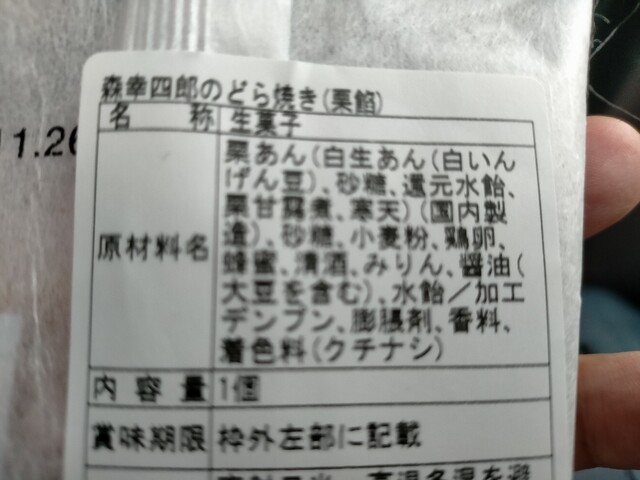 森幸四郎のどら焼き(栗餡)
名 称 生菓子
原材料名 栗あん(白生あん(白いん
げん豆)、砂糖、還元水飴、
栗甘露煮、寒天)(国内製
造)、砂糖、小麦粉、鶏卵、
蜂蜜、清酒、みりん、醤油(
大豆を含む)、水飴／加工
デンプン、膨脹剤、香料、
着色料(クチナシ)
内 容 量 1個
賞味期限 枠外左部に記載
1.26